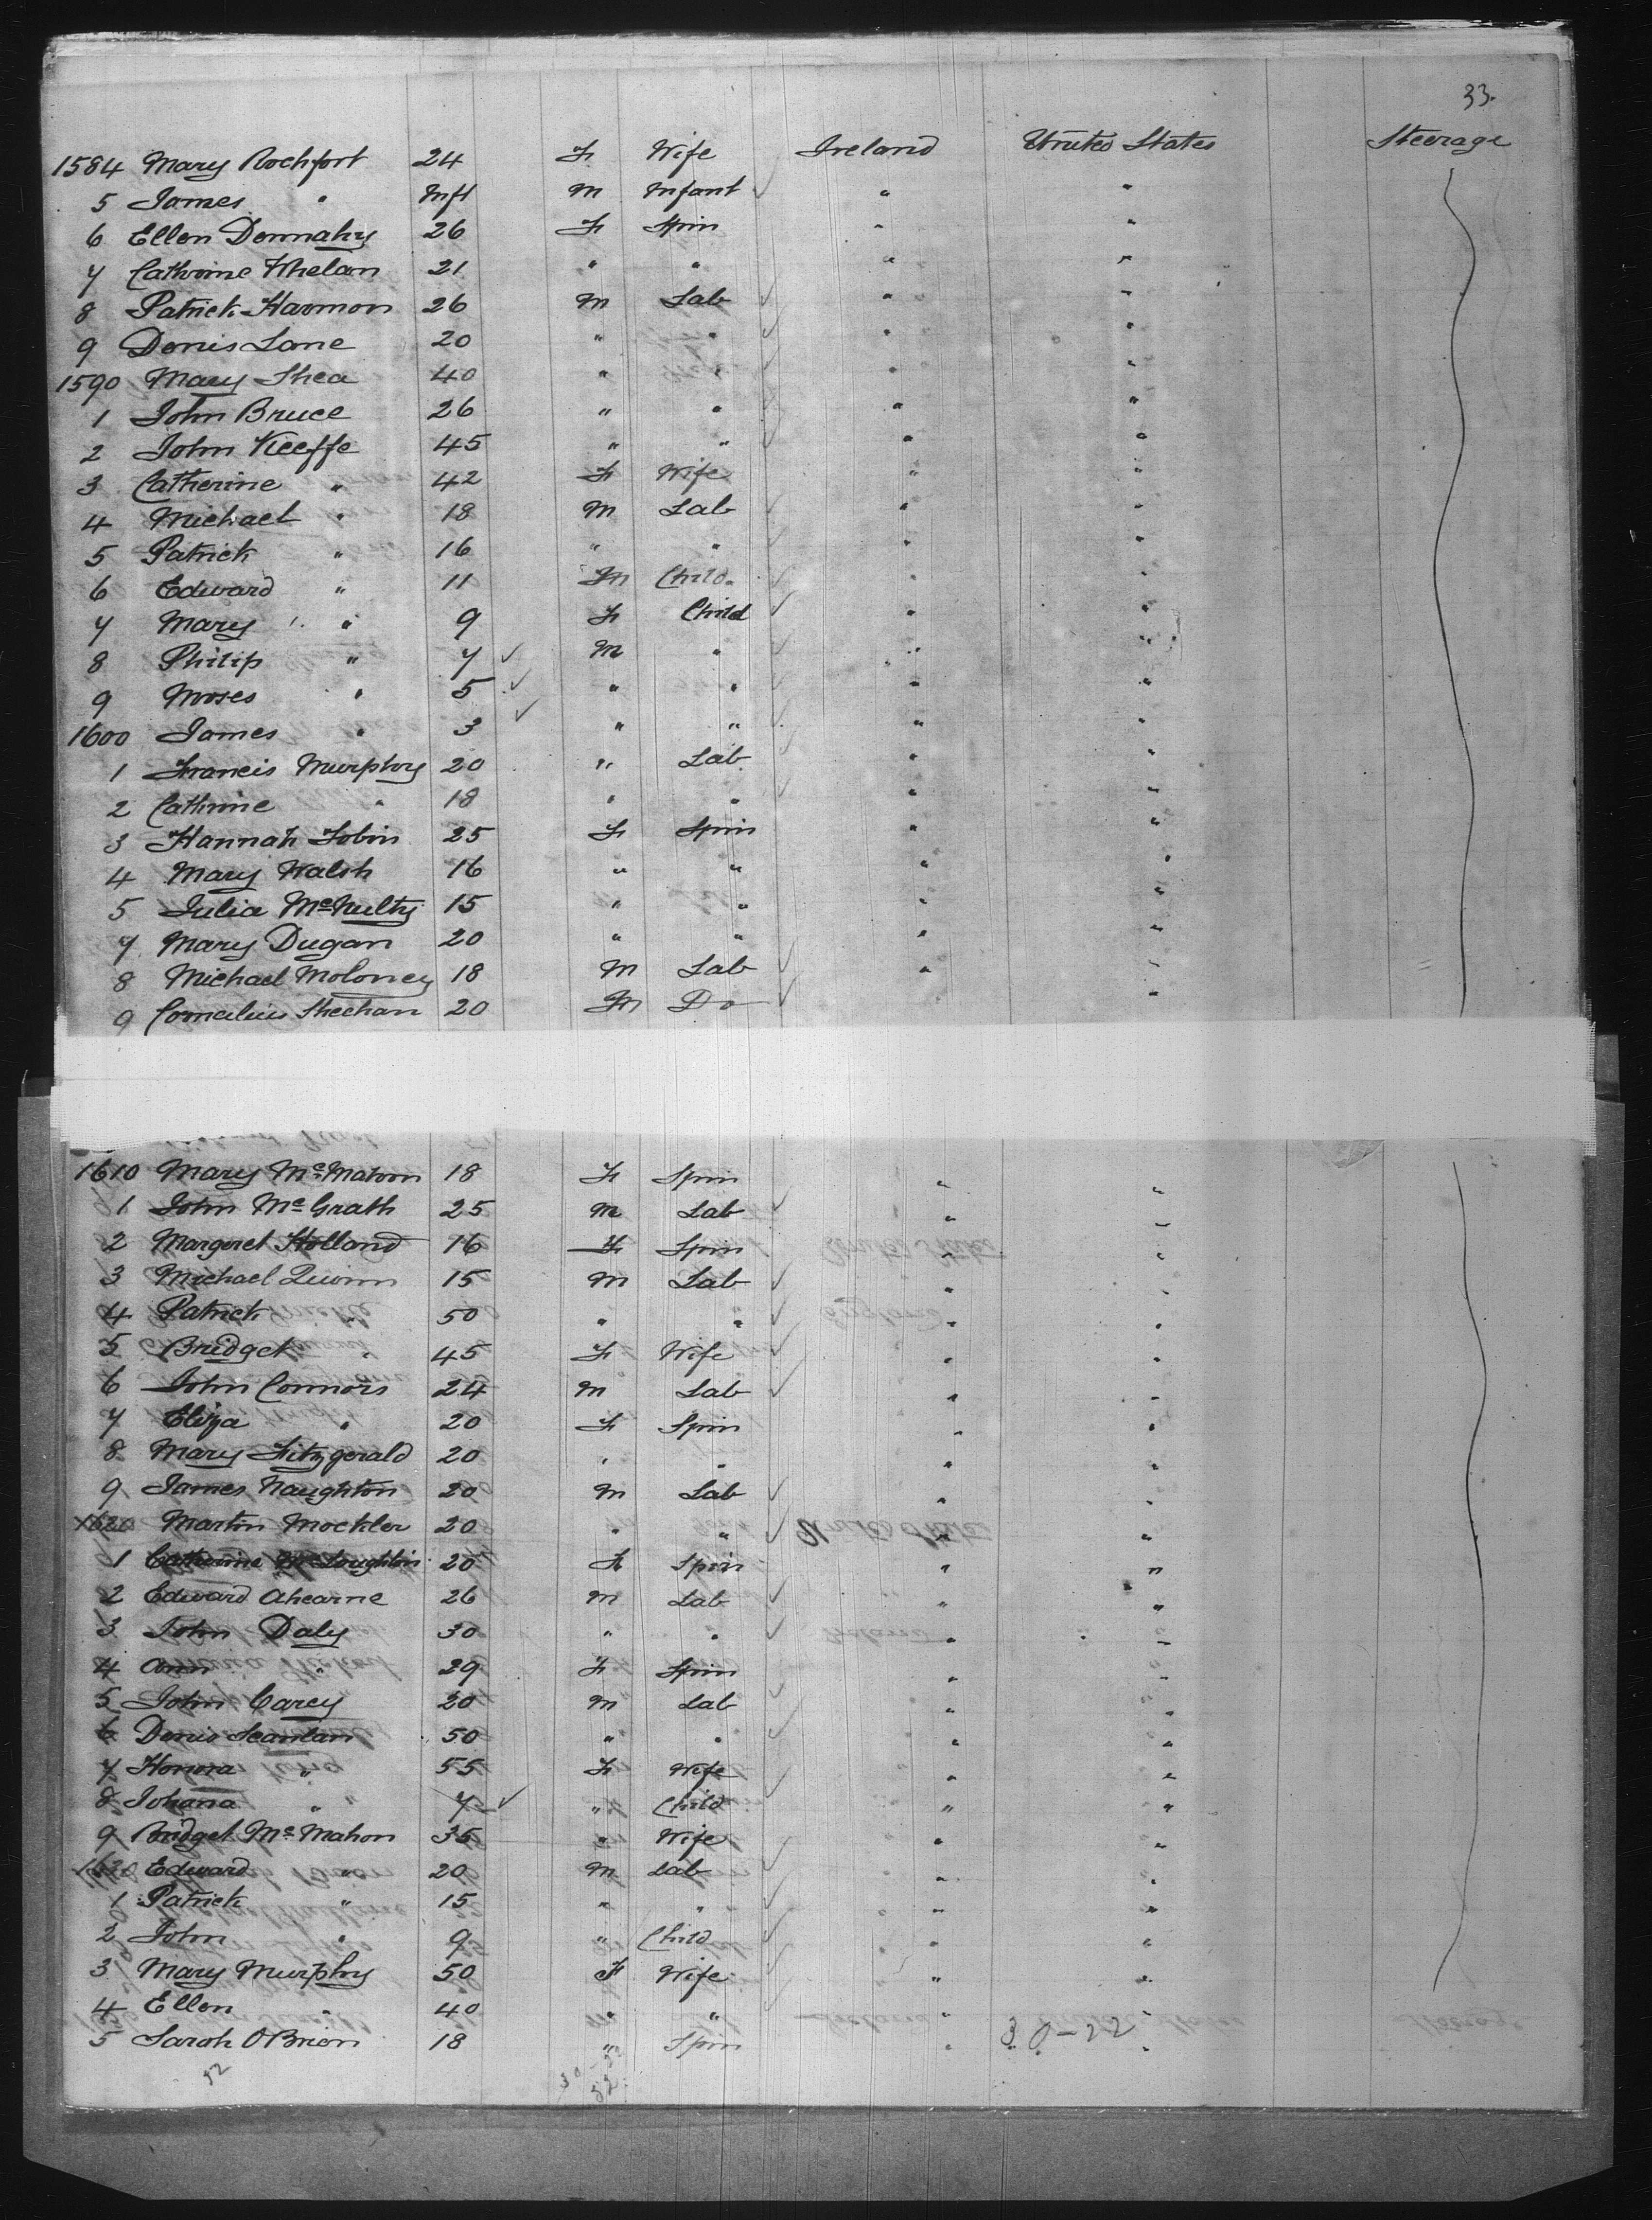 33.
1584 Mary Rochfort 24 F Wife Ireland United States Steerage
5 James " Inft M Infant " "
6 Ellen Donnahy 26 F Spin " "
7 Cathrine Whelan 21 " " " "
8 Patrick Harmon 26 M Lab " "
9 Denis Lane 20 " " " "
1590 Mary Shea 40 " " " "
1 John Bruce 26 " " " "
2 John Keeffe 45 " " " "
3 Catherine " 42 F Wife " "
4 Michael " 18 M Lab " "
5 Patrick " 16 " " " "
6 Edward " 11 M Child " "
7 Mary " 9 F Child " "
8 Philip " 7 M " " "
9 Moses " 5 " " " "
1600 James " 3 " " " "
1 Francis Murphy 20 " Lab " "
2 Cathrine " 18 " " " "
3 Hannah Tobin 25 F Spin " "
4 Mary Walsh 16 " " " "
5 Julia McNulty 15 " " " "
7 Mary Dugan 20 " " " "
8 Michael Moloney 18 M Lab " "
9 Cornelius Sheehan 20 M Do "
1610 Mary McMahon 18 F Spin " "
1 John McGrath 25 M Lab " "
2 Margeret Holland 16 F Spin " "
3 Michael Quinn 15 M Lab " "
4 Patrick " 50 " " " "
5 Bridget " 45 F Wife " "
6 John Connors 24 M Lab " "
7 Eliza " 20 F Spin " "
8 Mary Fitzgerald 20 " " " "
9 James Naughton 20 M Lab " "
1620 Martin Mockler 20 " " " "
1 Catherine McLoughlin 20 F Spin " "
2 Edward Ahearne 26 M Lab " "
3 John Daly 30 " " " "
4 Ann " 29 F Spin " "
5 John Carey 20 M Lab " "
6 Denis Scanlan 50 " " " "
7 Honora " 55 F Wife " "
8 Johana " 7 " Child " "
9 Bridget McMahon 35 " Wife " "
1630 Edward " 20 M Lab " "
1 Patrick " 15 " " " "
2 John " 9 " Child " "
3 Mary Murphy 50 F Wife " "
4 Ellen " 40 " " " "
5 Sarah O Brien 18 " Spin " "
30-22
52
30-22
52